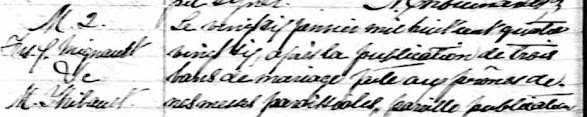 M. 2.
Le vingt six janvier mil huit cent quatre
Mignault
vingt six, après la publication de trois
&
bans de mariage faite aux prônes de
M. Thibault
nos messes paroissiales, pareille publication